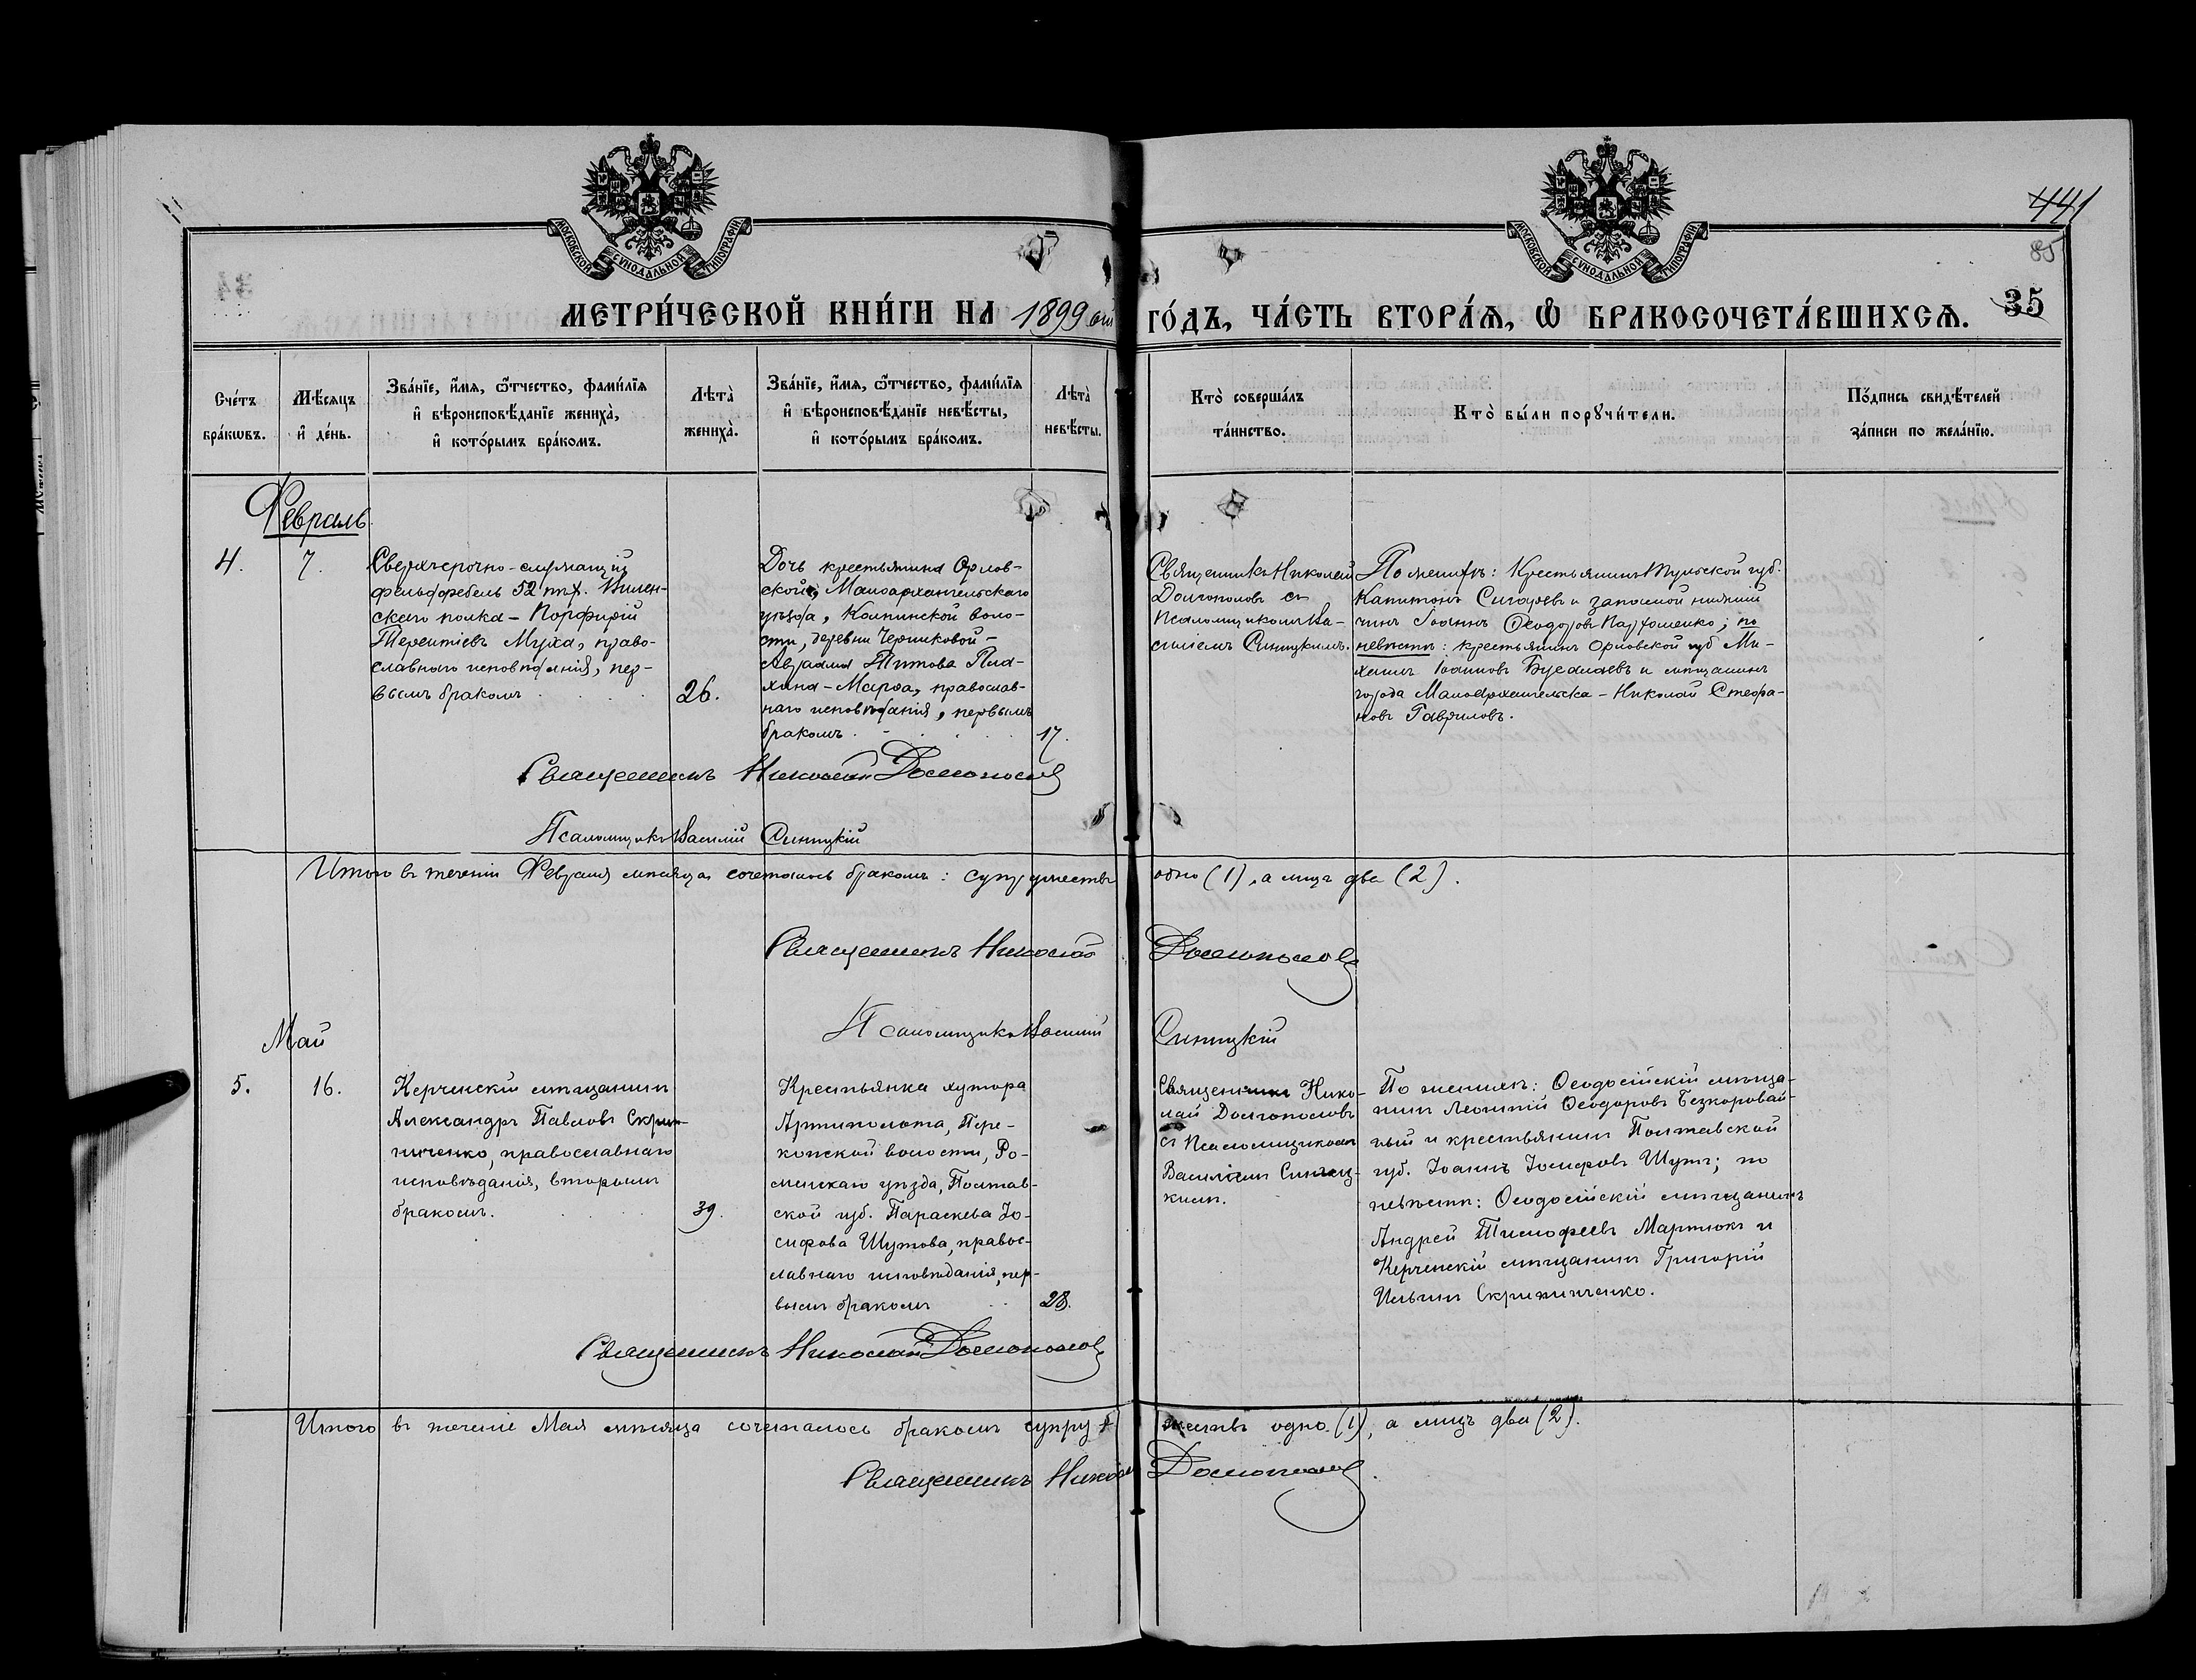 МОСКОВСКОЙ СѴНОДАЛЬНОЙ ТИПОГРАФІИ
МОСКОВСКОЙ СѴНОДАЛЬНОЙ ТИПОГРАФІИ
441
85
35
МЕТРИ́ЧЕСКОЙ КНИ́ГИ НА 1899 ый ГО́ДЪ, ЧА́СТЬ ВТОРА́Ѧ, Ѿ БРАКОСОЧЕТА́ВШИХСѦ.
Сче́тъ
бра́кѡвъ.
Мѣ́сяцъ
и҆ де́нь.
Зва́нїе, и҆́мя, ѻ҆́тчество, фами́лїя
и҆ вѣроисповѣ́данїе жениха̀,
и҆ кото́рымъ бра́комъ.
Лѣта̀
жениха̀.
Зва́нїе, и҆́мя, ѻ҆́тчество, фами́лїя
и҆ вѣроисповѣ́данїе невѣ́сты,
и҆ кото́рымъ бра́комъ.
Лѣта̀
невѣ́сты.
Кто̀ соверша́лъ
та́инство.
Кто̀ бы́ли порꙋчи́тели.
По́дпись свидѣ́телей
за́писи по жела́нїю.
Февраль
4.
7.
Сверхсрочно-служащій
фельдфебель 52 пѣх. Вилен-
скаго полка - Порфирій
Терентіевъ Муха, право-
славнаго исповѣданія, пер-
вымъ бракомъ
26.
Дочь крестьянина Орлов-
ской, Малоархангельскаго
уѣзда, Колпинской воло-
сти, деревни
Авраамія Титова
Марѳа, православ-
наго исповѣданія, первымъ
бракомъ
17.
Священникъ Николай
Долгополовъ съ
Псаломщикомъ Ва-
силіемъ Синицкимъ.
По женихѣ: Крестьянинъ Тульской губ.
Капитонъ и запасной нижній
чинъ Іоаннъ Ѳеодоровъ Пархоменко; по
невѣстѣ: крестьянинъ Орловской губ Ми-
хаилъ Іоанновъ и мѣщанинъ
города Малоархангельска - Николай Стефа-
новъ Гавриловъ.
Священникъ Николай Долгополов
Псаломщикъ Василій Синицкій
Итого въ теченіи Февраля мѣсяца сочеталось бракомъ: супружествъ одно (1), а лицъ два (2).
Священникъ Николай Долгополов
Псаломщикъ Василій Синицкій
Май
5.
16.
Керченскій мѣщанинъ
Александръ Павловъ Скрип-
ниченко, православнаго
исповѣданія, вторымъ
бракомъ.
39.
Крестьянка хутора
Артиполота, Пере-
копской волости, Ро-
менскаго уѣзда, Полтав-
ской губ. Параскева Іо-
сифова Шутова, правос-
лавнаго исповѣданія, пер-
вымъ бракомъ
28.
Священникъ Нико-
лай Долгополовъ
съ Псаломщикомъ
Василіемъ Синиц-
кимъ.
По женихѣ: Ѳеодосійскій мѣща-
нинъ Леонтій Ѳеодоровъ Безкоровай-
ный и крестьянинъ Полтавской
губ. Іоаннъ Іосифовъ Шутъ; по
невѣстѣ: Ѳеодосійскій мѣщанинъ
Андрей Тимофеевъ Мартюкъ и
Керченскій мѣщанинъ Григорій
Ильинъ Скрипниченко.
Священникъ Николай Долгополов
Итого въ теченіе Мая мѣсяца сочеталось бракомъ супружествъ одно (1), а лицъ два (2).
Священникъ Николай Долгополов.